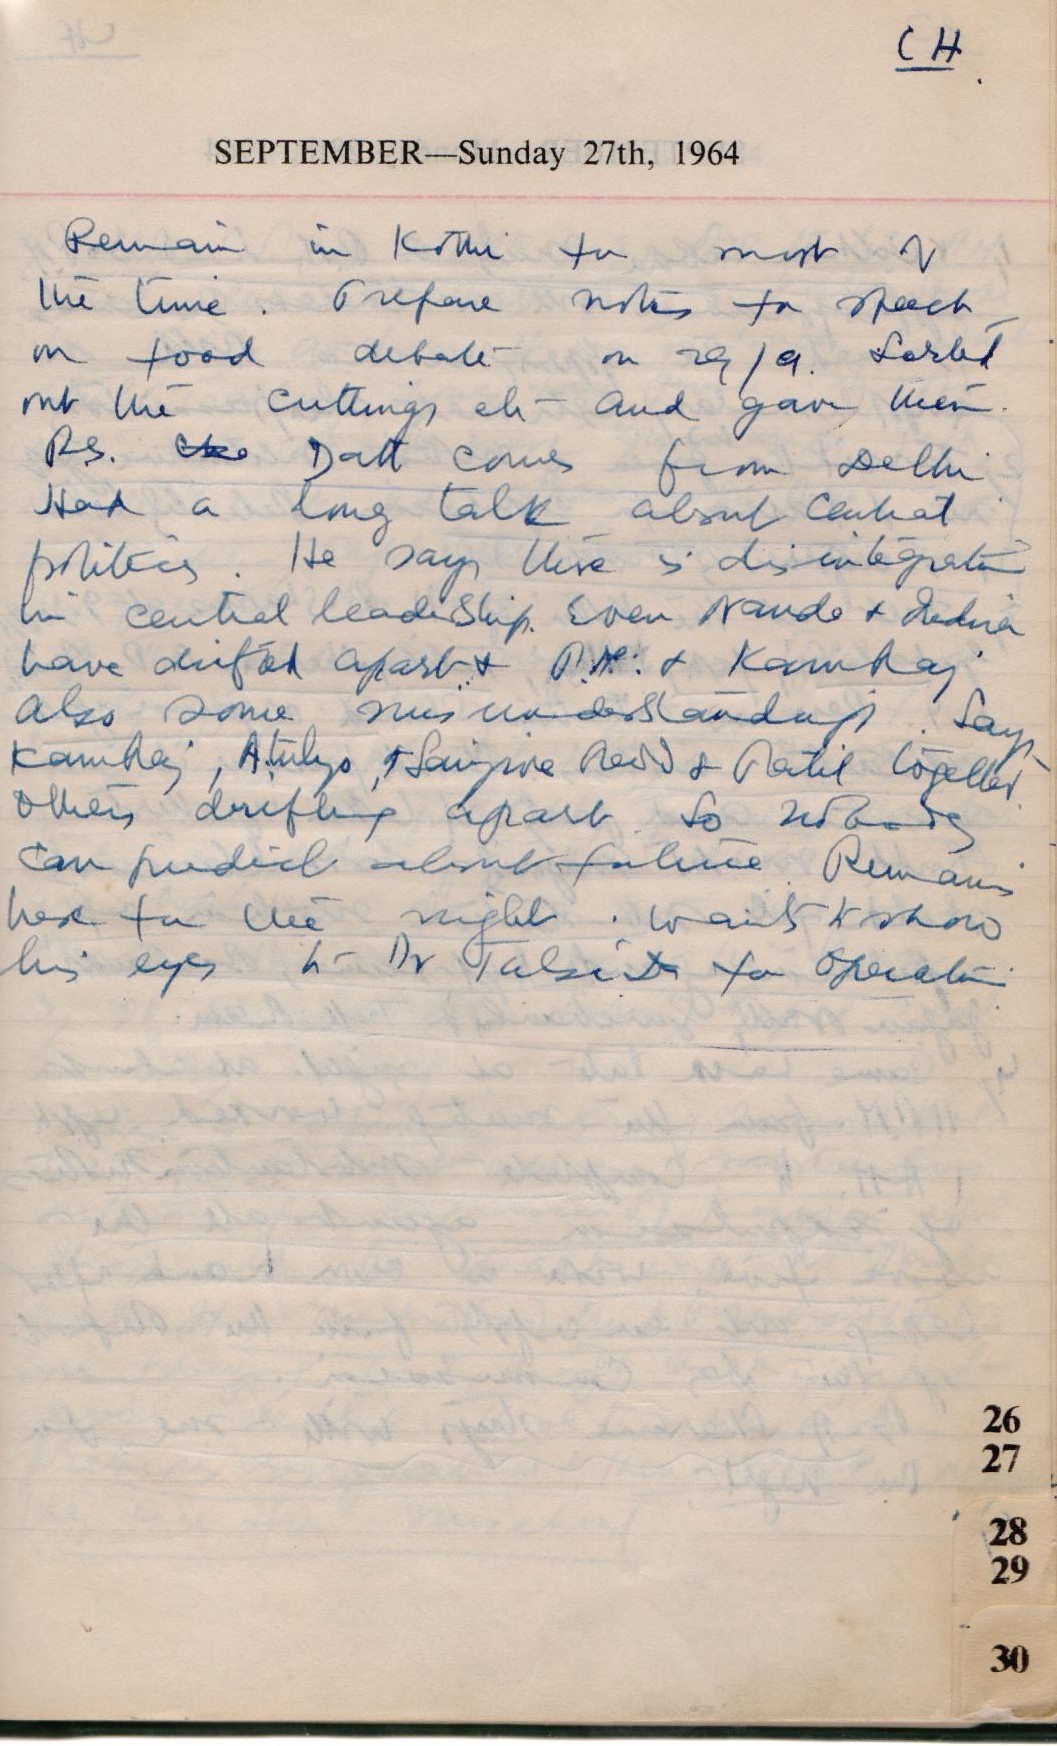 CH
SEPTEMBER—Sunday 27th, 1964
Remain in Kothi for most of
the time. Prepare notes for speech
on food debate on 29/9. Sorted
out the cuttings etc and gave them.
P.S. Datt comes from Delhi
Had a long talk about Central
politics. He says there is disintegration
in central leadership. Even Nanda & Indira
have drifted apart & P.M. & Kamraj
also some misunderstandings. Says
Kamraj, Atulya, & Sanjiva Reddi & Patil together
others drifting apart. So nobody
can predict about future. Remains
here for the night. wants to show
his eyes to Dr Tulsi for operation
26
27
28
29
30